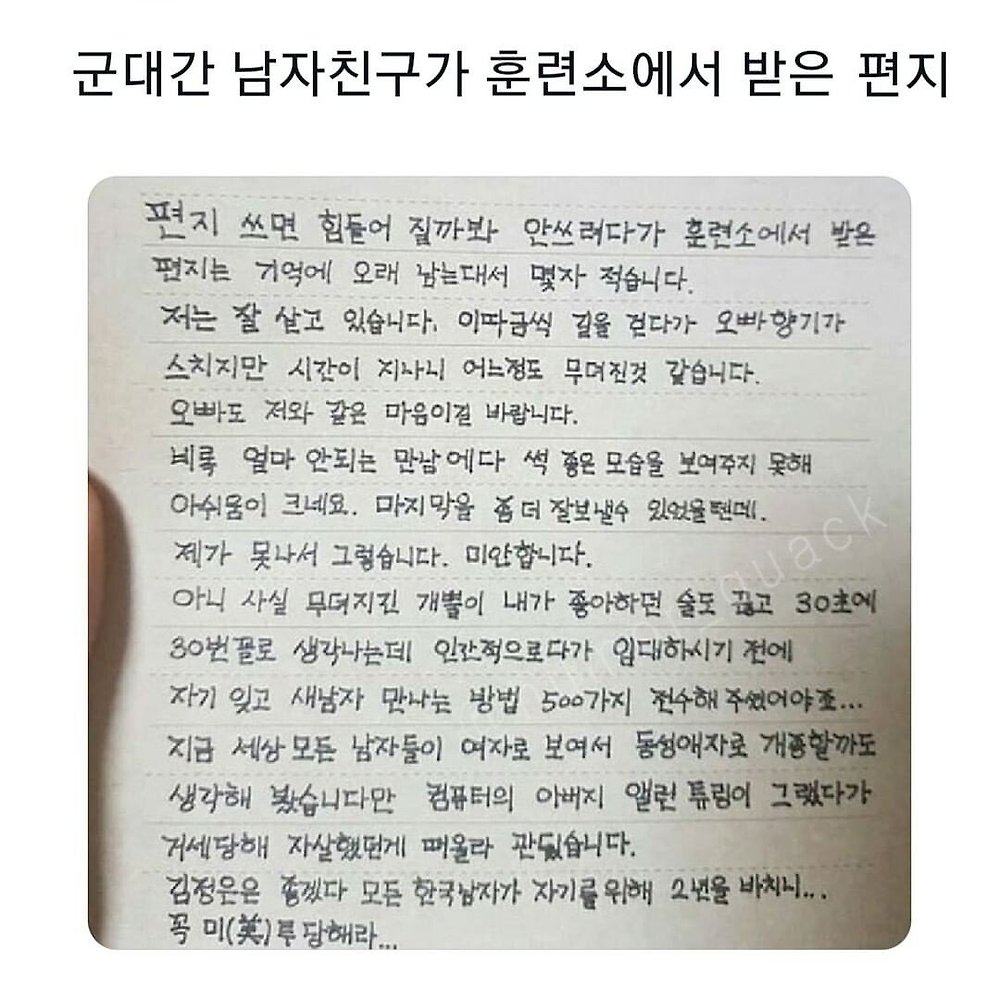 군대간 남자친구가 훈련소에서 받은 편지
편지 쓰면 힘들어 질까봐 안쓰려다가 훈련소에서 받은
편지는 기억에 오래 남는대서 몇자 적습니다.
저는 잘 살고 있습니다. 이따금씩 길을 걷다가 오빠향기가
스치지만 시간이 지나니 어느정도 무뎌진것 같습니다.
오빠도 저와 같은 마음이길 바랍니다.
비록 얼마 안되는 만남에다 썩 좋은 모습을 보여주지 못해
아쉬움이 크네요. 마지막을 좀 더 잘보낼수 있었을텐데.
제가 못나서 그렇습니다. 미안합니다.
아니 사실 무뎌지긴 개뿔이 내가 좋아하던 술도 끊고 30초에
30번꼴로 생각나는데 인간적으로다가 입대하시기 전에
자기 잊고 새남자 만나는 방법 500가지 전수해 주셨어야죠...
지금 세상 모든 남자들이 여자로 보여서 동성애자로 개종할까도
생각해 봤습니다만 컴퓨터의 아버지 앨런 튜링이 그랬다가
거세당해 자살했던게 떠올라 관뒀습니다.
김정은은 좋겠다 모든 한국남자가 자기를 위해 2년을 바치니...
꼭 미(美)투 당해라...
quack